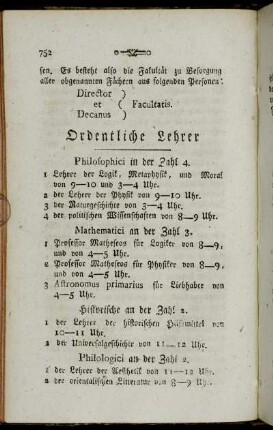 752
sen. Es besteht also die Fakultät zu Besorgung
aller obgenannten Fächern aus folgenden Personen:
Director )
et ( Facultatis.
Decanus )
Ordentliche Lehrer
Philosophici in der Zahl 4.
1 Lehrer der Logik, Metaphysik, und Moral
von 9—10 und 3—4 Uhr.
2 der Lehrer der Physik von 9—10 Uhr.
3 der Naturgeschichte von 3—4 Uhr.
4 der politischen Wissenschaften von 8—9 Uhr.
Mathematici an der Zahl 3.
1 Professor Matheseos für Logiker von 8—9,
und von 4—5 Uhr.
2 Professor Matheseos für Physiker von 8—9,
und von 4—5 Uhr.
3 Astronomus primarius für Liebhaber von
4—5 Uhr.
Historische an der Zahl 2.
1 der Lehrer der historischen Hülfmittel von
10—11 Uhr.
2 der Universalgeschichte von 11—12 Uhr.
Philologici an der Zahl 2.
1 der Lehrer der Aesthetik von 11—12 Uhr.
2 der orientalischen Litteratur von 8—9 Uhr.